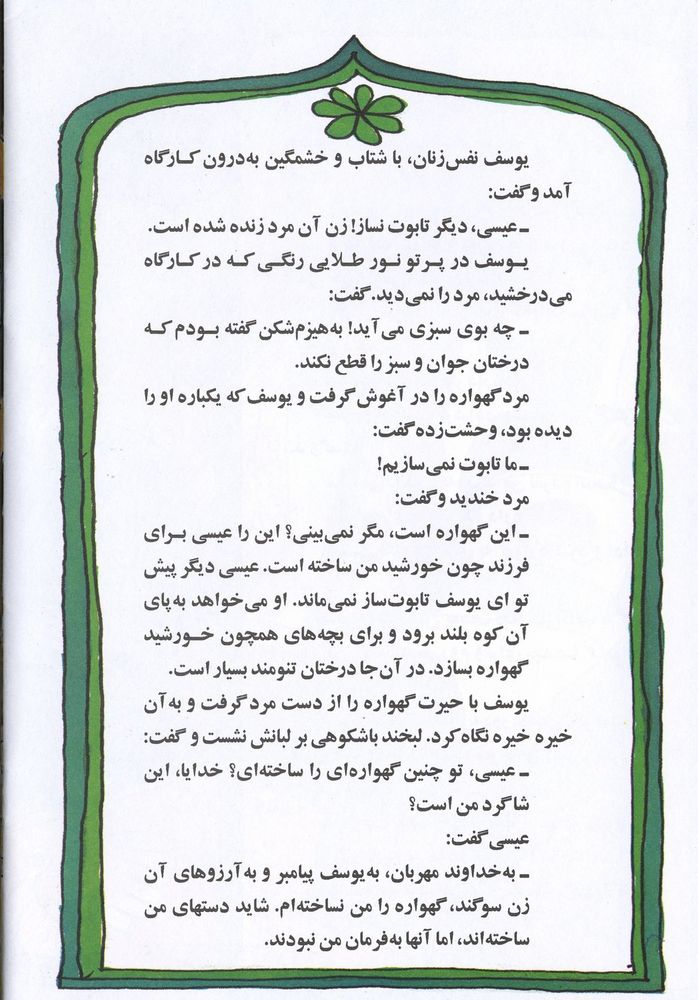 یوسف نفس‌زنان، با شتاب و خشمگین به‌درون کارگاه
آمد و گفت:
ـ عیسی، دیگر تابوت نساز! زن آن مرد زنده شده است.
یوسف در پرتو نور طلایی رنگی که در کارگاه
می‌درخشید، مرد را نمی‌دید. گفت:
ـ چه بوی سبزی می‌آید! به‌هیزم‌شکن گفته بودم که
درختان جوان و سبز را قطع نکند.
مرد گهواره را در آغوش گرفت و یوسف که یکباره او را
دیده بود، وحشت‌زده گفت:
ـ ما تابوت نمی‌سازیم!
مرد خندید و گفت:
ـ این گهواره است، مگر نمی‌بینی؟ این را عیسی برای
فرزند چون خورشید من ساخته است. عیسی دیگر پیش
تو ای یوسف تابوت‌ساز نمی‌ماند. او می‌خواهد به‌پای
آن کوه بلند برود و برای بچه‌های همچون خورشید
گهواره بسازد. در آن‌جا درختان تنومند بسیار است.
یوسف با حیرت گهواره را از دست مرد گرفت و به‌آن
خیره خیره نگاه کرد. لبخند باشکوهی بر لبانش نشست و گفت:
ـ عیسی، تو چنین گهواره‌ای را ساخته‌ای؟ خدایا، این
شاگرد من است؟
عیسی گفت:
ـ به‌خداوند مهربان، به‌یوسف پیامبر و به‌آرزوهای آن
زن سوگند، گهواره را من نساخته‌ام. شاید دستهای من
ساخته‌اند، اما آنها به‌فرمان من نبودند.